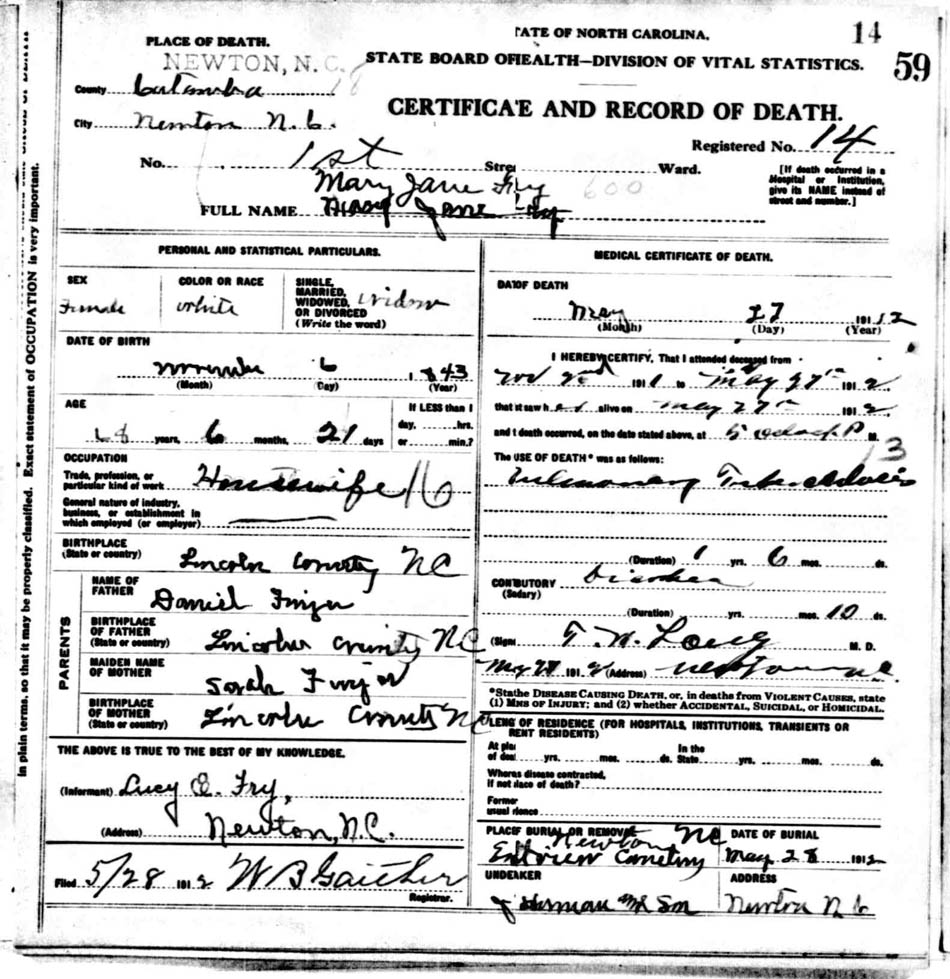 14
59
PLACE OF DEATH.
TATE OF NORTH CAROLINA.
NEWTON, N. C.
STATE BOARD OFIEALTH—DIVISION OF VITAL STATISTICS.
County Catawba
CERTIFICA'E AND RECORD OF DEATH.
City Newton N. C.
Registered No. 14
No. 1st Stre Ward.
[If death occurred in a Hospital or Institution, give its NAME instead of street and number.]
Mary Jane Fry
600
FULL NAME Mary Jane Fry
PERSONAL AND STATISTICAL PARTICULARS.
SEX
Female
COLOR OR RACE
White
SINGLE, MARRIED, WIDOWED, OR DIVORCED (Write the word)
widow
DATE OF BIRTH
November 6 1843
(Month) (Day) (Year)
AGE
68 years, 6 months, 21 days
If LESS than 1 day, hrs. or min.?
OCCUPATION
Trade, profession, or particular kind of work
Housewife 16
General nature of industry, business, or establishment in which employed (or employer)
BIRTHPLACE (State or country)
Lincoln County NC
PARENTS
NAME OF FATHER
Daniel Finger
BIRTHPLACE OF FATHER (State or country)
Lincoln County NC
MAIDEN NAME OF MOTHER
Sarah Finger
BIRTHPLACE OF MOTHER (State or country)
Lincoln County NC
THE ABOVE IS TRUE TO THE BEST OF MY KNOWLEDGE.
(Informant) Lucy O. Fry,
(Address) Newton, N.C.
Filed 5/28 1912 W B Gaither
Registrar.
MEDICAL CERTIFICATE OF DEATH.
DATOF DEATH
May 27 1912
(Month) (Day) (Year)
I HEREBYCERTIFY, That I attended deceased from
Nov 2nd 1911 to May 27th 1912
that it saw her alive on May 27th 1912
and t death occurred, on the date stated above, at 5 oclock P M.
13
The USE OF DEATH* was as follows:
Pulmonary Tuberculosis
(Duration) 1 yrs. 6 mos. ds.
CONTBUTORY Diarrhea
(Sedary)
(Duration) yrs. mos. 10 ds.
(Sign T. W. Long M. D.
May 28 1912 (Address) Newton N.C.
*Stathe DISEASE CAUSING DEATH, or, in deaths from VIOLENT CAUSES, state
(1) MNS OF INJURY; and (2) whether ACCIDENTAL, SUICIDAL, or HOMICIDAL.
LENG OF RESIDENCE (FOR HOSPITALS, INSTITUTIONS, TRANSIENTS OR
RENT RESIDENTS)
At plac of deat yrs. mos. ds. In the State yrs. mos. ds.
Wheras disease contracted,
if not lace of death?
Former
usual rience
PLACE BURIAL OR REMOVA
Newton NC
Eastview Cemetery
DATE OF BURIAL
May 28 1912
UNDEAKER
ADDRESS
Newton N C
in plain terms, so that it may be properly classified. Exact statement of OCCUPATION is very important.